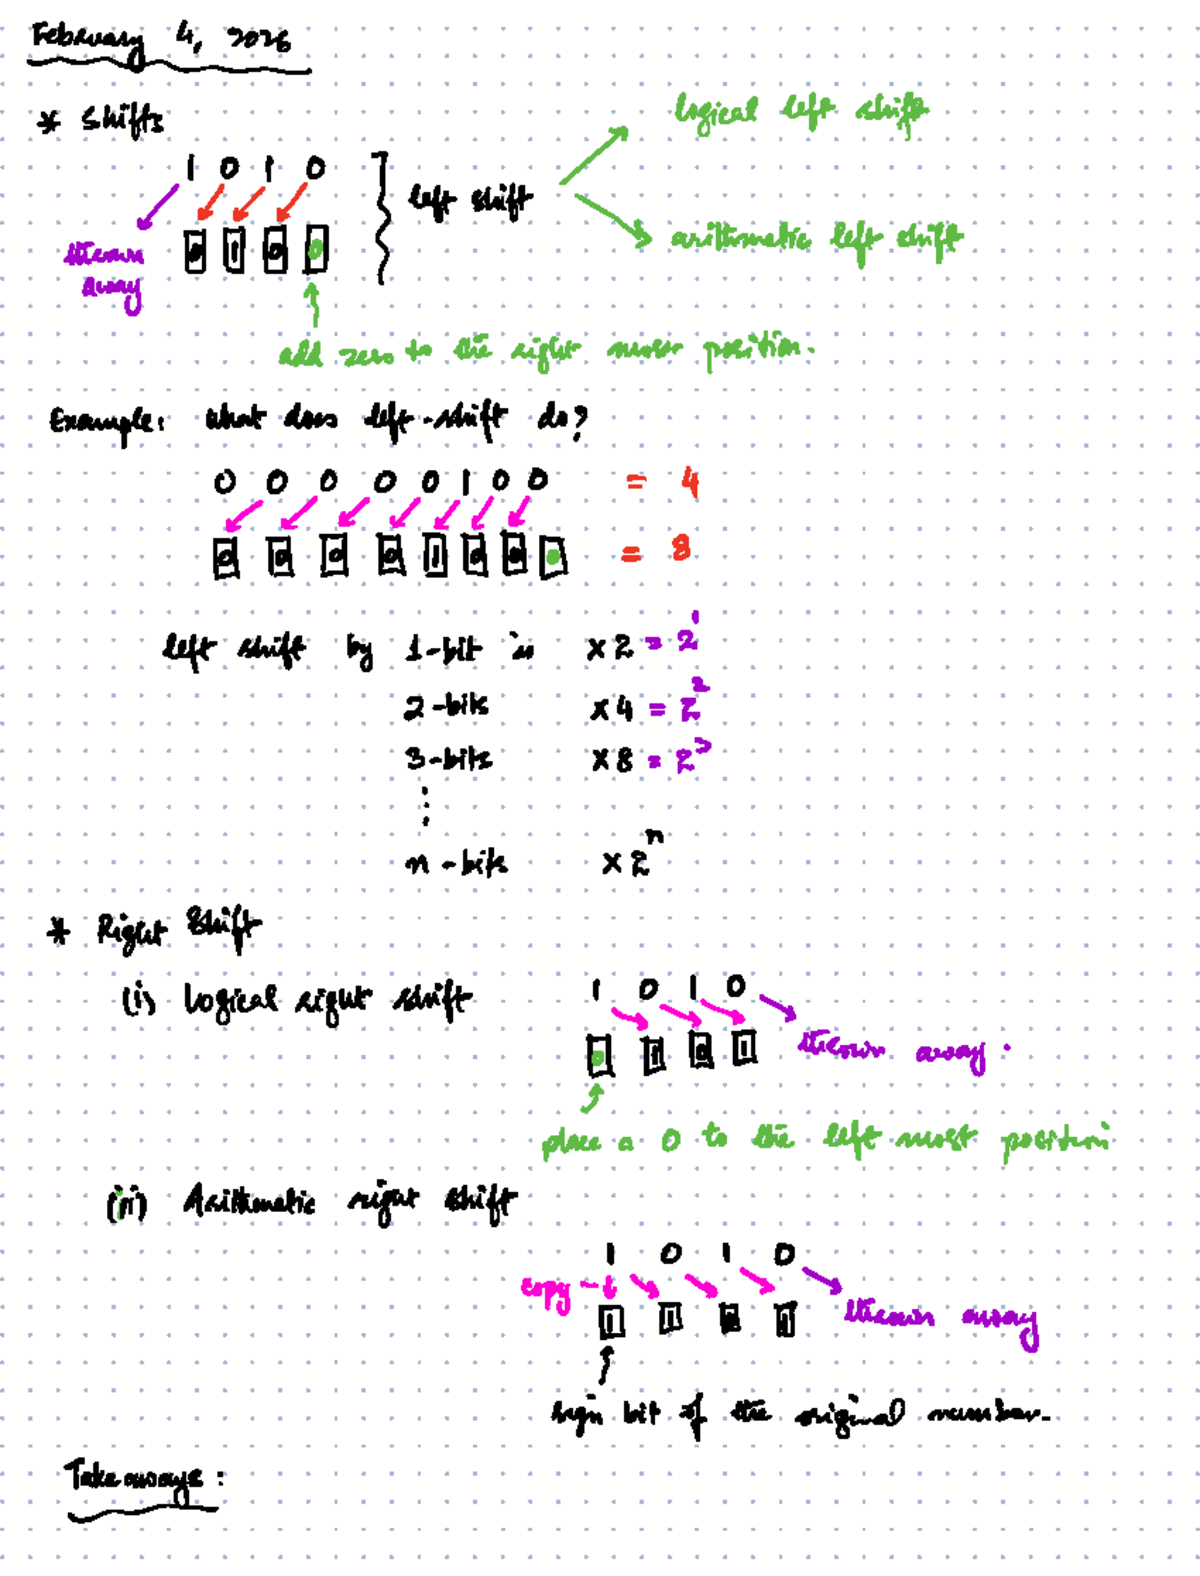 February 4, 2026
* Shifts
logical left shift
1 0 1 0
left shift
thrown away
0 1 0 0
arithmetic left shift
add zero to the right most position.
Example: What does left-shift do?
0 0 0 0 0 1 0 0 = 4
0 0 0 0 1 0 0 0 = 8
left shift by 1-bit is x 2 = 2^1
2-bits x 4 = 2^2
3-bits x 8 = 2^3
⋮
n-bits x 2^n
* Right Shift
(i) Logical right shift
1 0 1 0
0 1 0 1 thrown away.
place a 0 to the left most position
(ii) Arithmatic right shift
1 0 1 0
copy
1 1 0 1 thrown away
sign bit of the original number.
Takeaways: